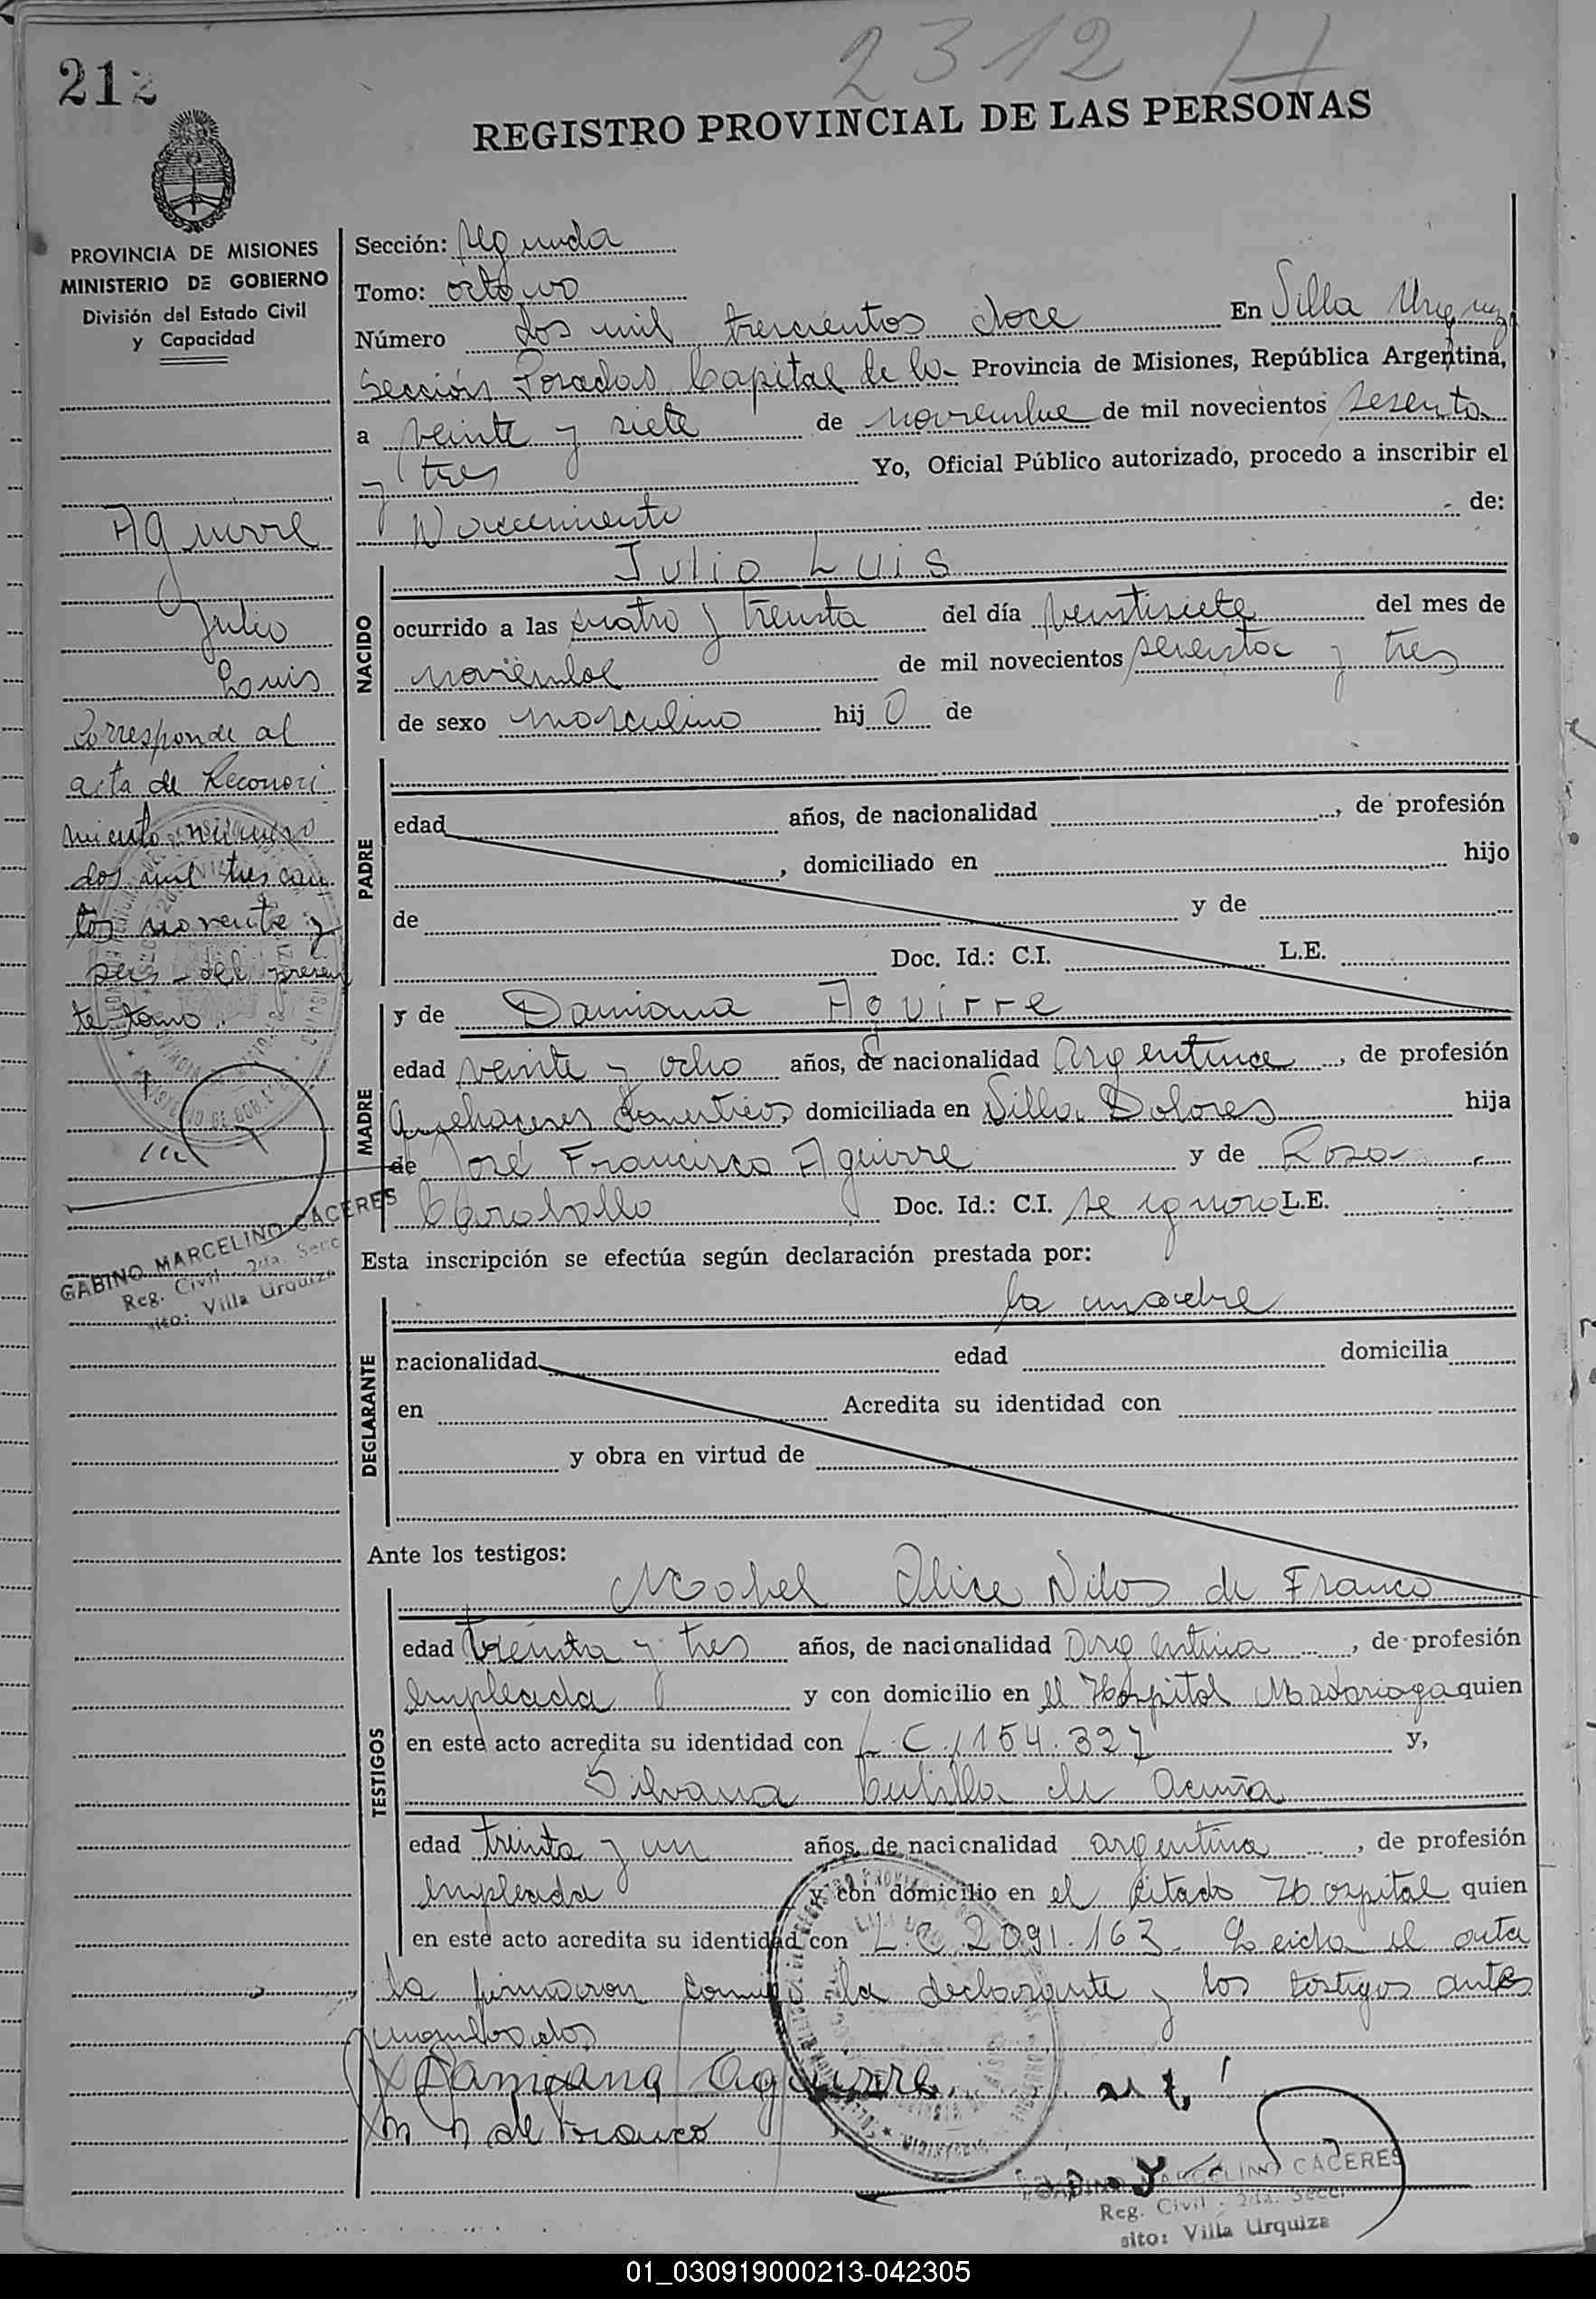 2312 H
212
REGISTRO PROVINCIAL DE LAS PERSONAS
PROVINCIA DE MISIONES
MINISTERIO DE GOBIERNO
División del Estado Civil
y Capacidad
Aguirre
Julio
Luis
Corresponde al
acta de Reconoci
miento número
dos mil trescien
tos noventa y
seis del presen
te tomo.
GABINO MARCELINO CACERES
Reg. Civil - 2da. Secc
sito: Villa Urquiza
Sección: segunda
Tomo: octavo
Número dos mil trescientos doce En Villa Urquiza
Sección Posadas Capital de la Provincia de Misiones, República Argentina,
a veinte y siete de noviembre de mil novecientos sesenta
y tres Yo, Oficial Público autorizado, procedo a inscribir el
Nacimiento de:
NACIDO
Julio Luis
ocurrido a las cuatro y treinta del día veintisiete del mes de
noviembre de mil novecientos sesenta y tres
de sexo masculino hij o de
PADRE
edad años, de nacionalidad , de profesión
, domiciliado en hijo
de y de
Doc. Id.: C.I. L.E.
MADRE
y de Damiana Aguirre
edad veinte y ocho años, de nacionalidad argentina , de profesión
quehaceres domesticos, domiciliada en Villa Dolores hija
de José Francisco Aguirre y de Rosa
Caraballo Doc. Id.: C.I. se ignora L.E.
Esta inscripción se efectúa según declaración prestada por:
DECLARANTE
la madre
nacionalidad edad domicilia
en Acredita su identidad con
y obra en virtud de
Ante los testigos:
TESTIGOS
Mabel Alice de Franco
edad treinta y tres años, de nacionalidad argentina , de profesión
empleada y con domicilio en el Hospital Madariaga quien
en este acto acredita su identidad con L.C. 1154.327 y,
Silvana de Acuña
edad treinta y un años, de nacionalidad argentina , de profesión
empleada y con domicilio en el citado Hospital quien
en este acto acredita su identidad con L.C 2091.163. Leida el acta
la firmaron conmigo la declarante y los testigos antes
nombrados
Damiana Aguirre
de Franco
GABINO MARCELINO CACERES
Reg. Civil - 2da. Secc.
sito: Villa Urquiza
01_030919000213-042305